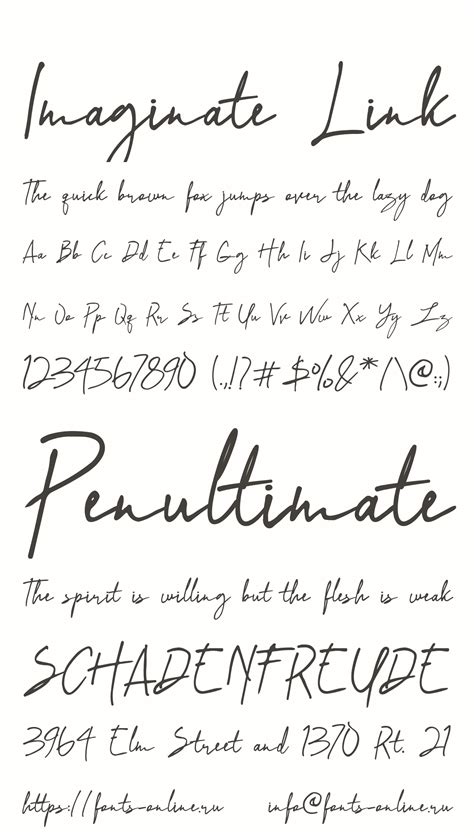 Imaginate Link
The quick brown fox jumps over the lazy dog
Aa Bb Cc Dd Ee Ff Gg Hh Ii Jj Kk Ll Mm
Nn Oo Pp Qq Rr Ss Tt Uu Vv Ww Xx Yy Zz
1234567890 (.,!?#$%&*/\@:;)
Penultimate
The spirit is willing but the flesh is weak
SCHADENFREUDE
3964 Elm Street and 1370 Rt. 21
https://fonts-online.ru info@fonts-online.ru